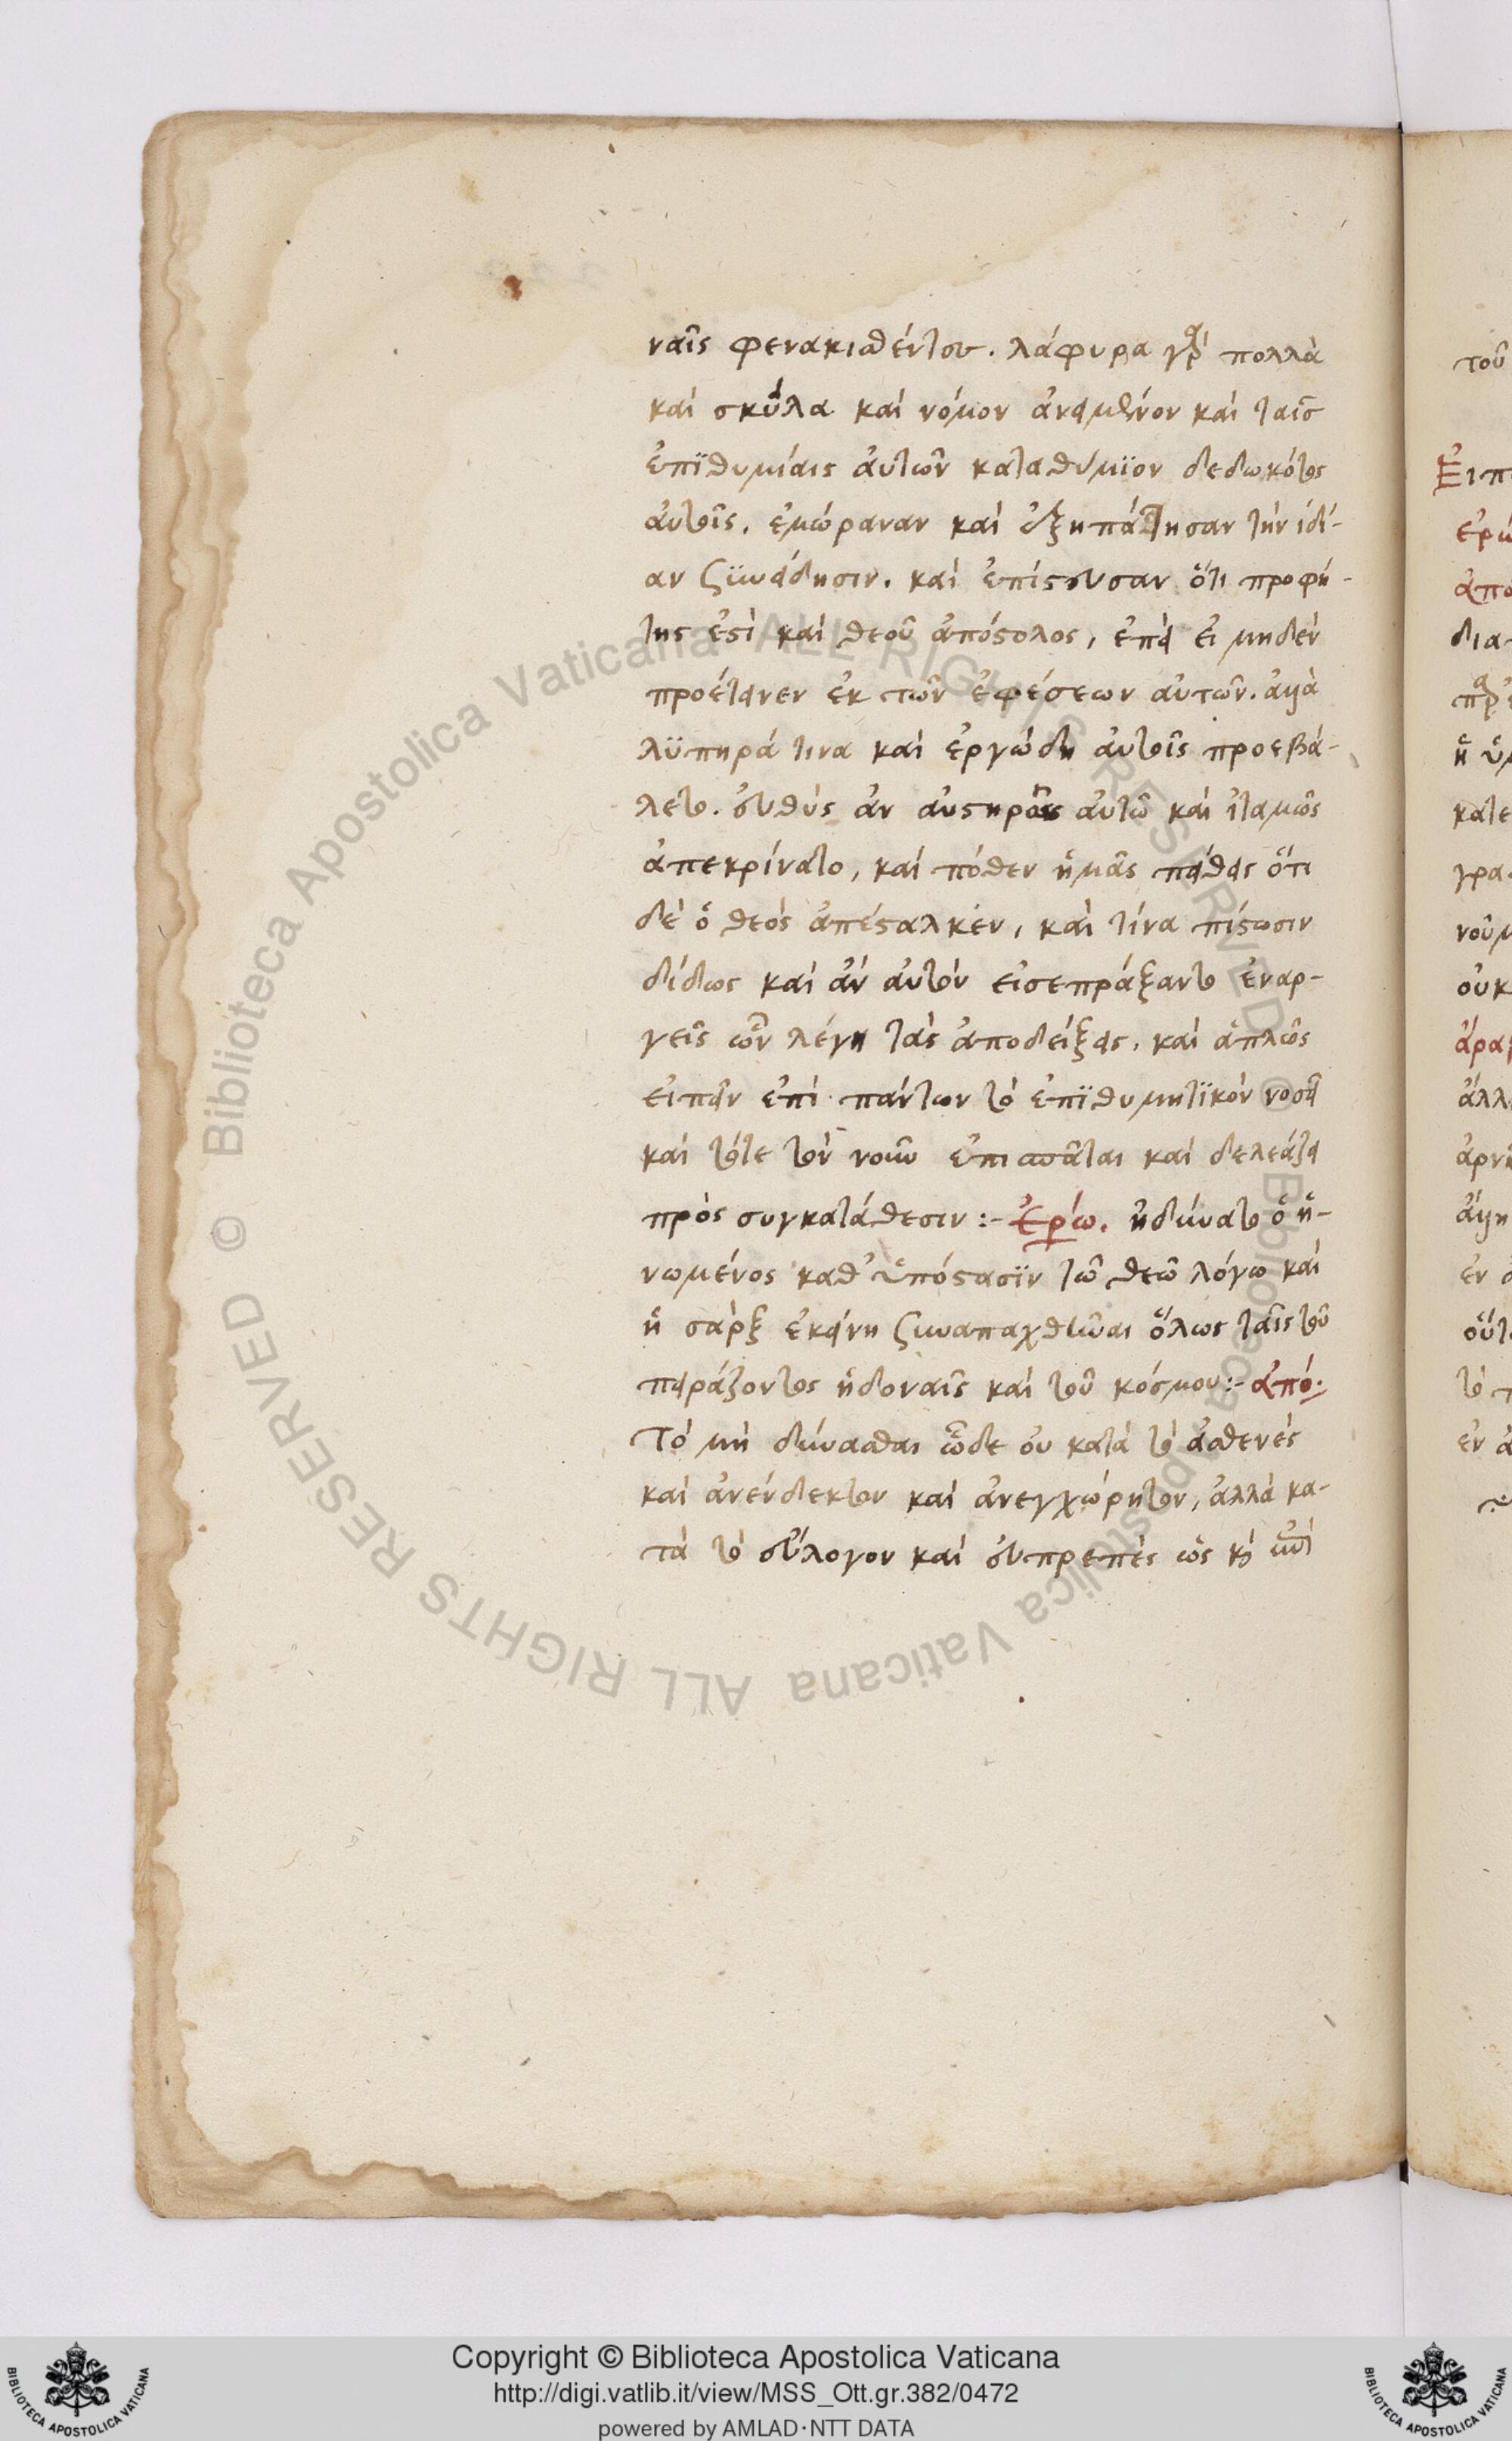 ναῖς φενακισθέντου. λάφυρα γὰρ πολλὰ
καὶ σκῦλα καὶ νόμον ἀνειμένον καὶ ταῖς
ἐπϊθυμίαις ἀυτῶν καταθύμϊον δεδωκότος
ἀυτοῖς. ἐμώραναν καὶ ἐξηπάτησαν τὴν ἰδί-
αν ζϋνείδησιν. καὶ ἐπίστευσαν ὅτι προφή-
της ἐστὶ καὶ θεοῦ ἀπόστολος, ἐπεὶ εἰ μηδὲν
προέτεινεν ἐκ τῶν ἐφέσεων αὐτῶν. ἀλλὰ
λϋπηρά τινα καὶ ἐργώδη ἀυτοῖς προεβά-
λετο. ἐυθὺς ἀν αὐστηρῶς αὐτῶ καὶ ἰταμῶς
ἀπεκρίνατο, καὶ πόθεν ἡμᾶς πείθεις ὅτι
δὲ ὁ θεός ἀπέσταλκεν, καὶ τίνα πίστωσιν
δίδως καὶ ἀν ἀυτὸν εἰσεπράξαντο ἐναρ-
γεῖς ὧν λέγη τὰς ἀποδείξεις. καὶ ἁπλῶς
εἰπεῖν ἐπὶ πάντων τὸ ἐπϊθυμητϊκὸν νοσεῖ
καὶ τότε τὸν νοῦν ἐπισπᾶται καὶ δελεάζει
πρὸς συγκατάθεσιν :- Ἐρώ. ἠδύνατο ὁ ἡ-
νωμένος καθ᾽ ὑπόστασϊν τῶ θεῶ λόγω καὶ
ἡ σὰρξ ἐκείνη ζυναπαχθῆναι ὅλως ταῖς τοῦ
πειράζοντος ἡδοναῖς καὶ τοῦ κόσμου :- ἀπό.
Τὸ μὴ δύνασθαι ὧδε ὀυ κατὰ τὸ ἀσθενὲς
καὶ ἀνένδεκτον καὶ ἀνεγχώρητον, ἀλλὰ κα-
τὰ τὸ εὔλογον καὶ ἐυπρεπὲς ὡς καὶ
τοῦ
Ἐιπ
ἐρώ
ἀπο
δια
ἢ
κατε
γρα
νοῦμ
οὐκ
ἄραβ
ἀλλ
ἀρν
ἐν
οὕτ
τὸ π
ἐν ἀ
Copyright © Biblioteca Apostolica Vaticana
http://digi.vatlib.it/view/MSS_Ott.gr.382/0472
powered by AMLAD·NTT DATA
BIBLIOTECA APOSTOLICA VATICANA
BIBLIOTECA APOSTOLICA VATICANA
© Biblioteca Apostolica Vaticana ALL RIGHTS RESERVED © Biblioteca Apostolica Vaticana ALL RIGHTS RESERVED